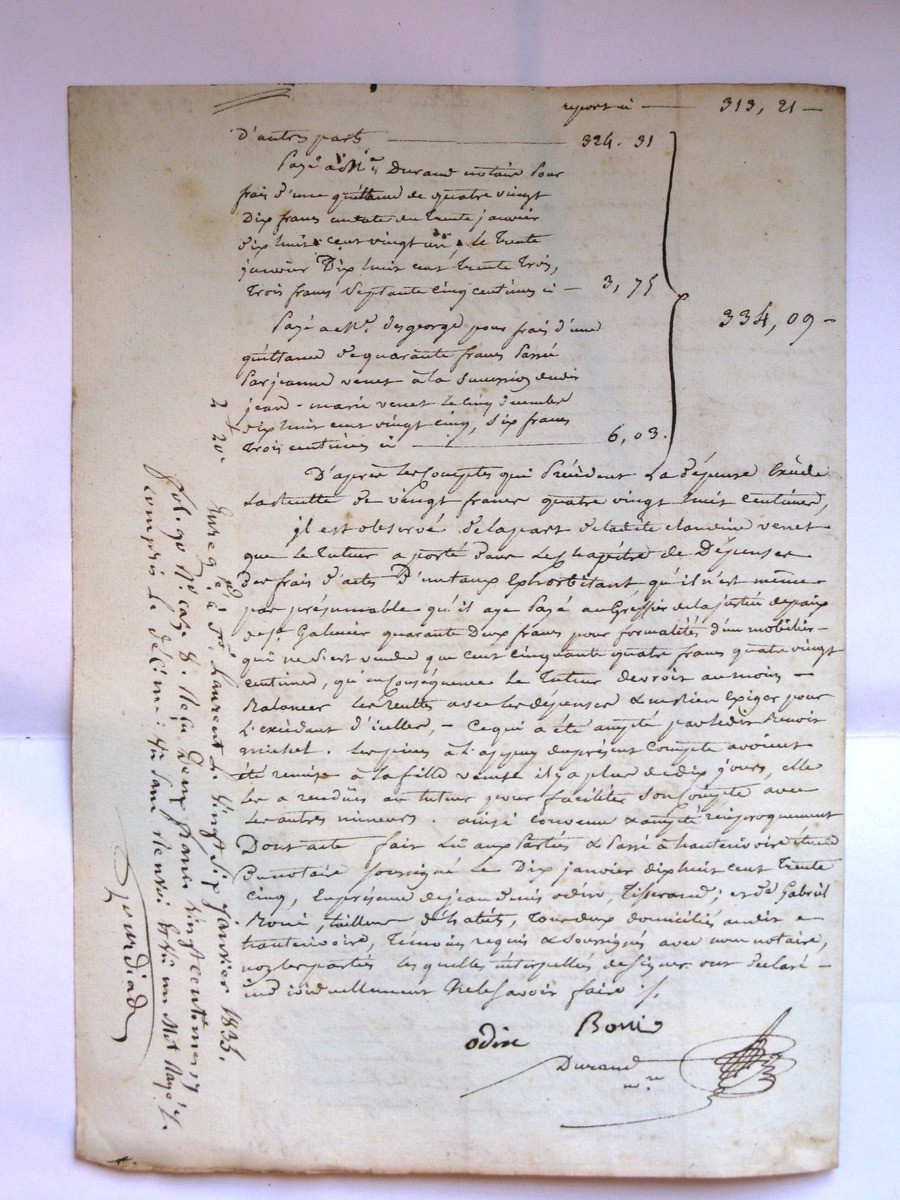 report ci — 313, 21 —
D'autre part — 324. 31
Payé à Me Durand notaire pour
frais d'une quittance de quatre vingt
Dix francs en date du trente janvier
dix huit cent vingt le trente
janvier Dix huit cent trente trois,
trois francs septante cinq centimes ci — 3, 75
334, 09 —
Payé a Me. desgeorge pour frais d'une
quittance de quarante francs passé
par jeanne venet à la succession dudit
jean-marie venet le cinq decembre
dix huit cent vingt cinq, six francs
trois centimes ci — 6, 03.
D'après les Comptes qui précèdent La dépense Excède
La recette de vingt francs quatre vingt huit centimes,
il est observé de la part de ladite claudine venet
que le tuteur a porté dans Le chapitre de Dépenses
des frais d'acte D'un taux Exhorbitant, qu'il n'est même
pas présumable qu'il aye payé au Greffier de la justice de paix
de St Galmier quarante deux francs pour formalités d'un mobilier
qui ne s'est vendu que cent cinquante quatre francs quatre vingt
centimes, qu'en conséquence le tuteur devroit au moins —
Balancer les recettes avec les dépenses & ne rien Exiger pour
L'excédant d'icelles, — Ce qui a été accepté par ledit Benoit
michel. les pièces à l'appuy du présent Compte avoient
été remises à la fille venet il y a plus de dix jours, elle
les a rendües au tuteur pour faciliter son Compte avec
les autres mineurs. ainsi convenu & accepté réciproquement
Dont acte fait Lu aux parties & passé à hauterivoire étude
Du notaire soussigné le Dix janvier dix huit cent trente
cinq, En présence de jean denis odin, tisserand; et de Gabriel
Bonié, tailleur d'habits, tous deux domiciliés audit
hauterivoire, témoins requis & soussignés avec nous notaire,
non les parties les quelles interpellés de signer ont déclaré —
individuellement ne le savoir faire ./.
odin Bonié
Durand
nre
2 20c
Enregtré à St. Laurent le vingt six janvier 1835.
fol. 90 Vo. case 8. Reçu Deux francs vingt centimes
compris le décime.
Gourdiad